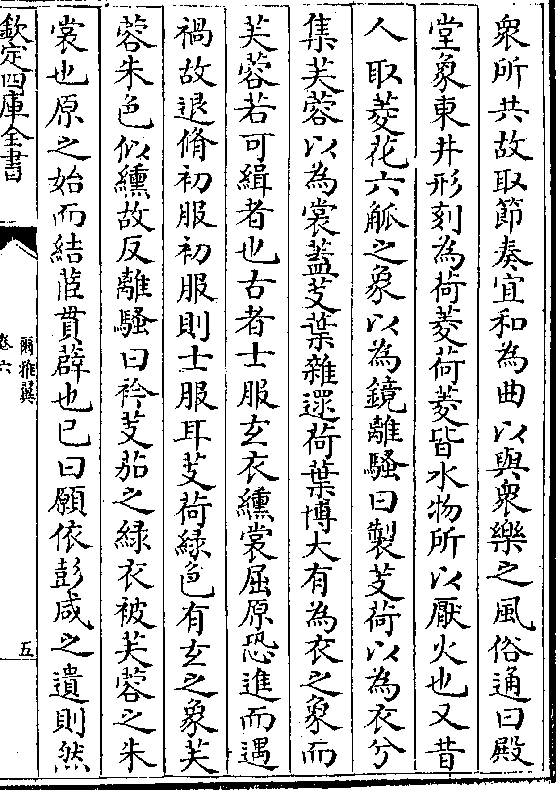 衆所共故取節奏宜和為曲以與衆樂之風俗通曰殿
堂象東井形刻為荷菱荷菱皆水物所以厭火也又昔
人取菱花六觚之象以為鏡離騷曰製芰荷以為衣兮
集芙蓉以為裳蓋芰葉雜遝荷葉博大有為衣之象而
芙蓉若可緝者也古者士服玄衣纁裳屈原恐進而遇
禍故退脩初服初服則士服耳芰荷綠色有玄之象芙
蓉朱色似纁故反離騷曰衿芰茄之綠衣被芙蓉之朱
裳也原之始而結茝貫薜也已曰願依彭咸之遺則然
欽定四庫全書
爾雅翼
卷六
五